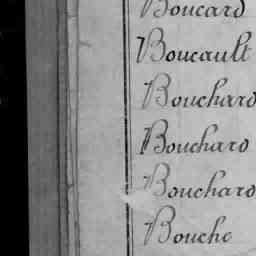 Boucard
Boucault
Bouchard
Bouchard
Bouchard
Bouche